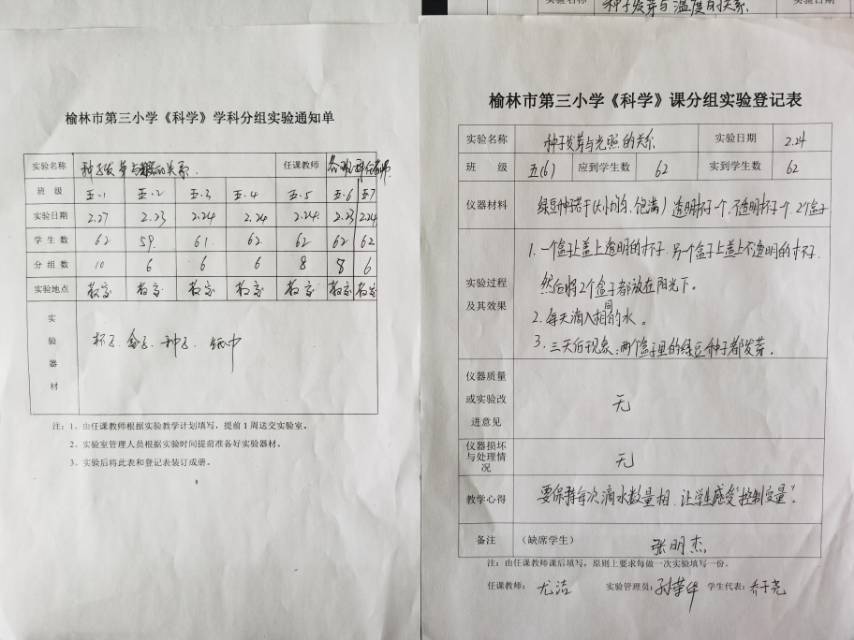 种子发芽与温度的关系
榆林市第三小学《科学》学科分组实验通知单
实验名称 种子发芽与的关系 任课教师
班 级 五.1 五.2 五.3 五.4 五.5 五.6 五7
实验日期 2.27 2.23 2.24 2.24 2.24 2.23 2.24
学生数 62 59 61 62 62 62 62
分组数 10 6 6 6 8 8 6
实验地点 教室 教室 教室 教室 教室 教室 教室
实验器材 杯子、盒子、种子、纸巾
注：1、由任课教师根据实验教学计划填写，提前1周送交实验室。
2、实验室管理人员根据实验时间提前准备好实验器材。
3、实验后将此表和登记表装订成册。
榆林市第三小学《科学》课分组实验登记表
实验名称 种子发芽与光照的关系 实验日期 2.24
班 级 五(6) 应到学生数 62 实到学生数 62
仪器材料 绿豆种子若干(大小均匀、饱满) 透明杯子一个、不透明杯子一个、2个盒子
实验过程及其效果
1. 一个盒子上盖上透明的杯子、另一个盒子上盖上不透明的杯子
然后将2个盒子都放在阳光下。
2. 每天滴入相同的水。
3. 三天后现象：两个盒子里的绿豆种子都发芽。
仪器质量或实验改进意见 无
仪器损坏与处理情况 无
教学心得 要保持每次滴水数量相、让学生感受“控制变量”。
备注 （缺席学生） 张明杰
注：由任课教师课后填写，原则上要求每做一次实验填写一份。
任课教师： 尤洁 实验管理员： 孙华 学生代表：